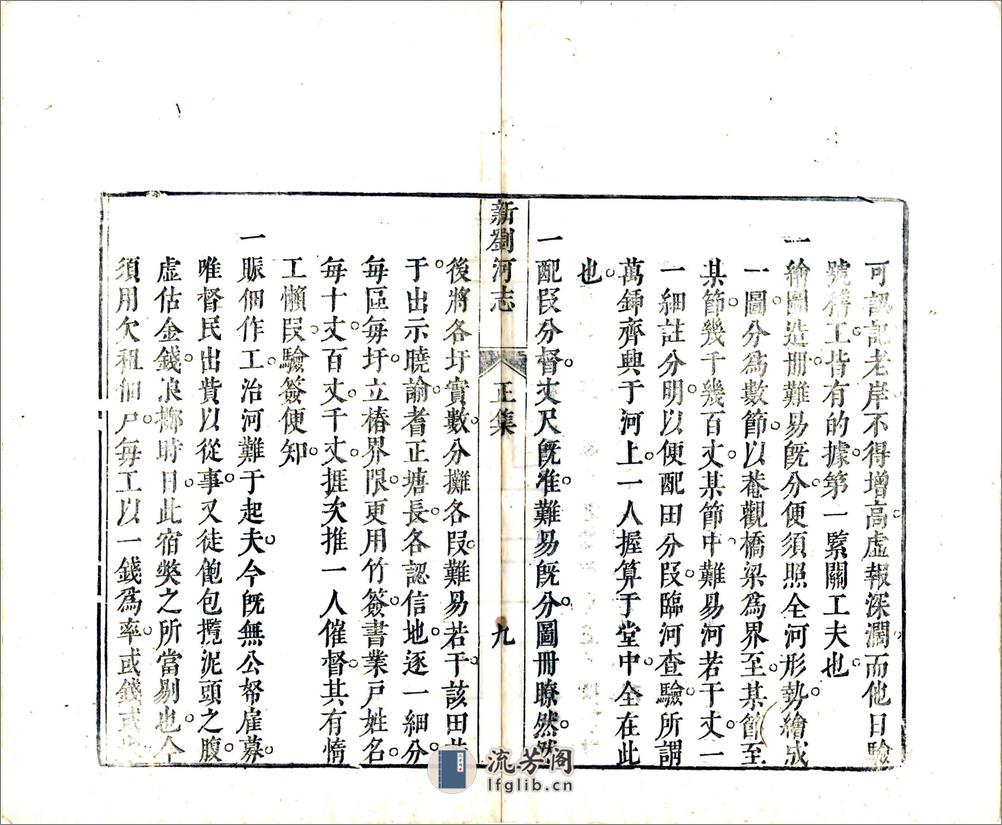 可認記老岸不得增高虛報深濶而他日驗
號稽工皆有的據第一緊關工夫也
一繪圖造冊難易旣分便須照全河形勢繪成
一圖分爲數節以菴觀橋梁爲界至某節至
某節幾千幾百丈某節中難易河若干丈一
一細註分明以便配田分段臨河查驗所謂
萬鍤齊興于河上一人握算于堂中全在此
也
一配段分督丈尺旣准難易旣分圖冊瞭然然
新劉河志 正集 九
後將各圩實數分攤各段難易若干該田
于出示曉諭耆正塘長各認信地逐一細分
每區每圩立樁界限更用竹簽書業戶姓名
每十丈百丈千丈捱次推一人催督其有惰
工懶段驗簽便知
一賑佃作工治河難于起夫今旣無公帑雇募
唯督民出費以從事又徒飽包攬泥頭之腹
虛估金錢浪擲時日此宿獘之所當剔也今
須用欠租佃戶每工以一錢爲率或錢或
流芳阁
lfglib.cn